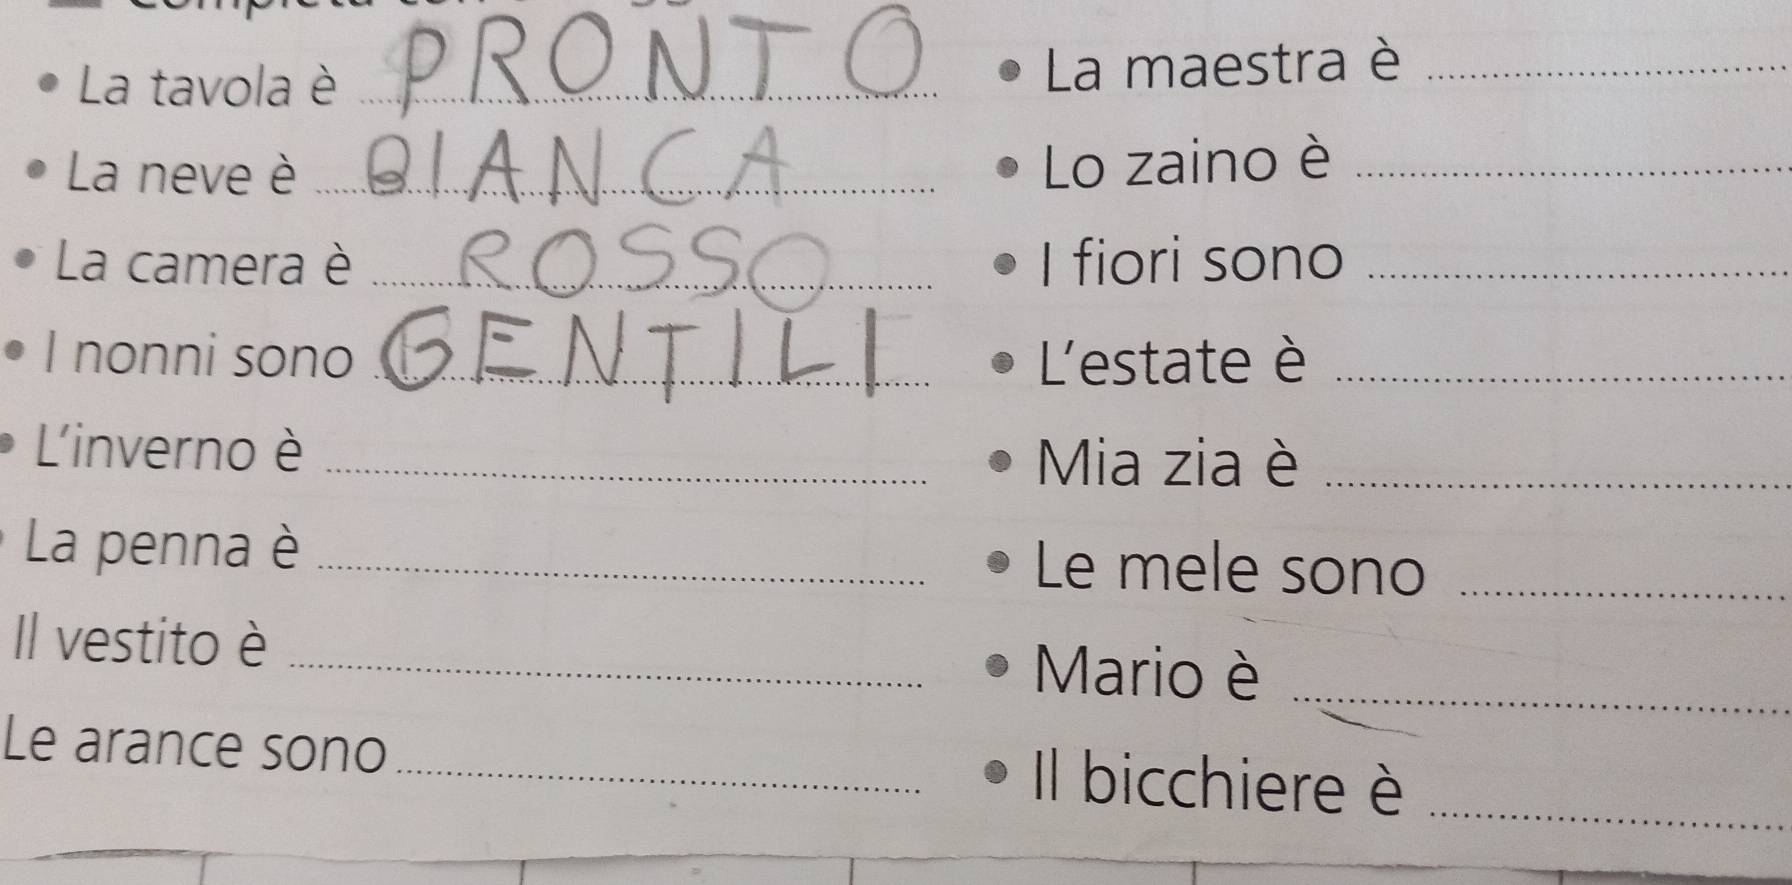 La tavola è PRONTO
La neve è BIANCA
La camera è ROSSO
I nonni sono GENTILI
L'inverno è
La penna è
Il vestito è
Le arance sono
La maestra è
Lo zaino è
I fiori sono
L'estate è
Mia zia è
Le mele sono
Mario è
Il bicchiere è